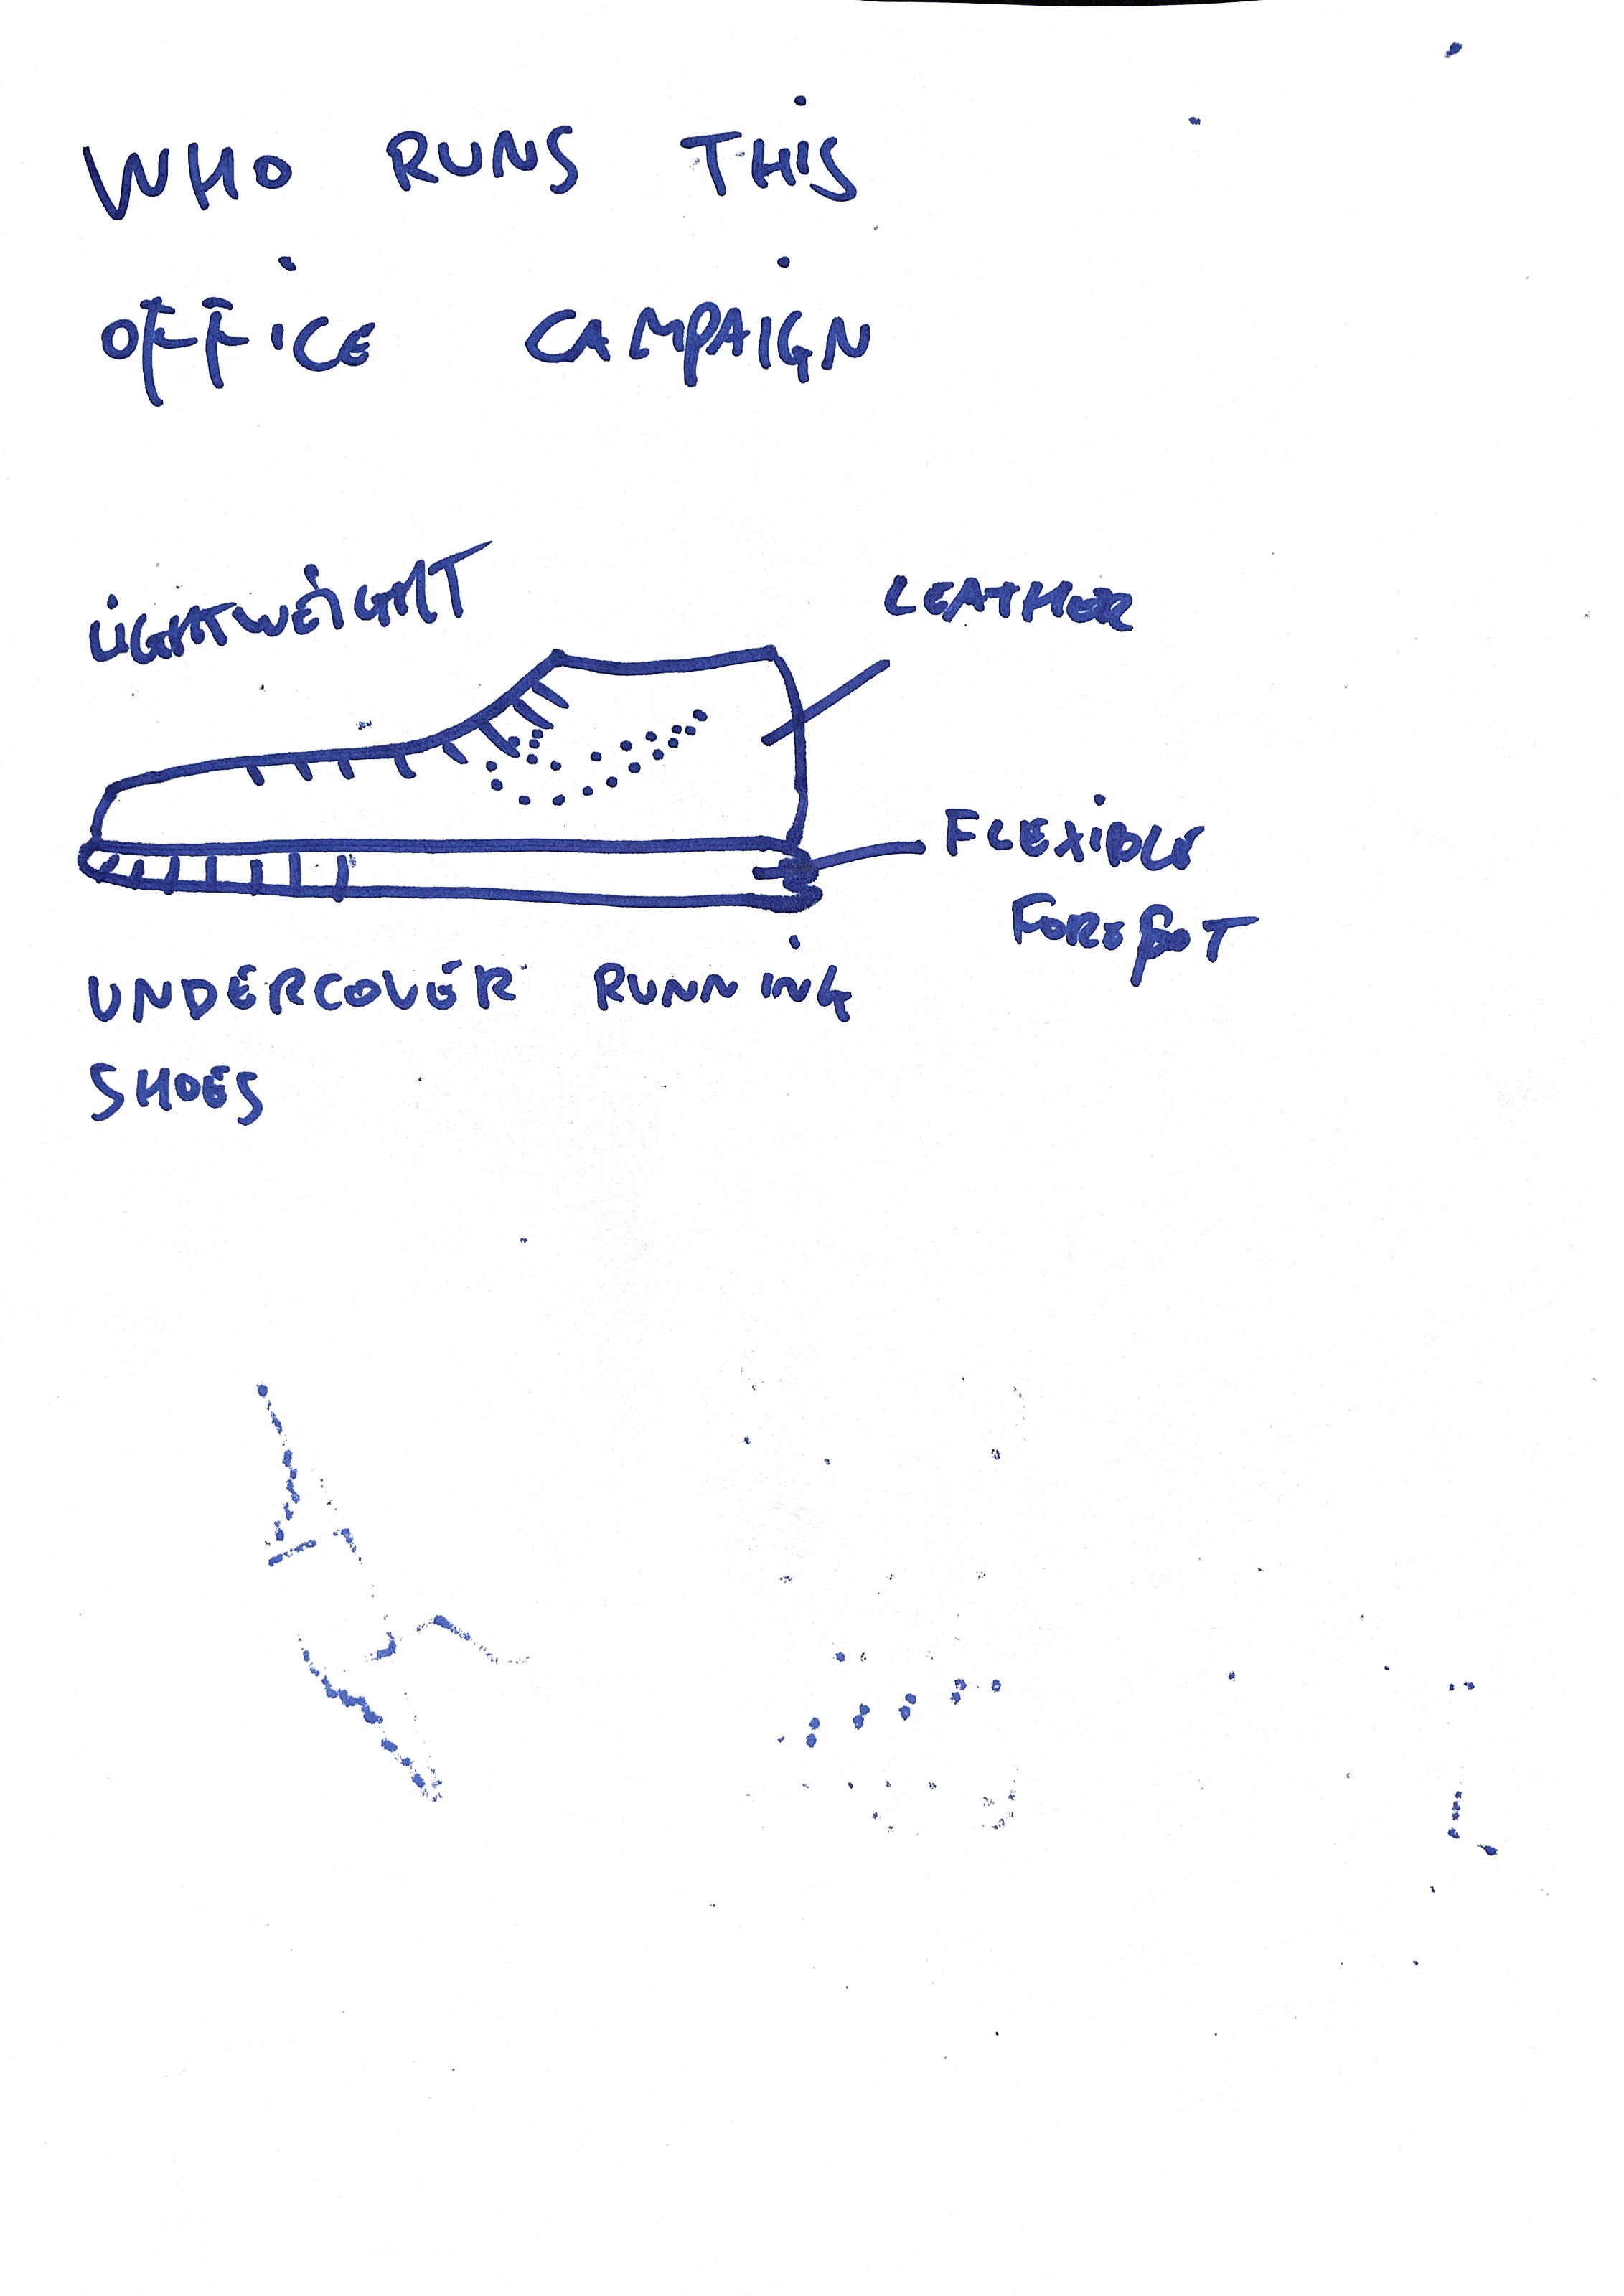 WHO RUNS THIS
OFFICE CAMPAIGN
LIGHTWEIGHT
LEATHER
FLEXIBLE
FOREFOOT
UNDERCOVER RUNNING
SHOES